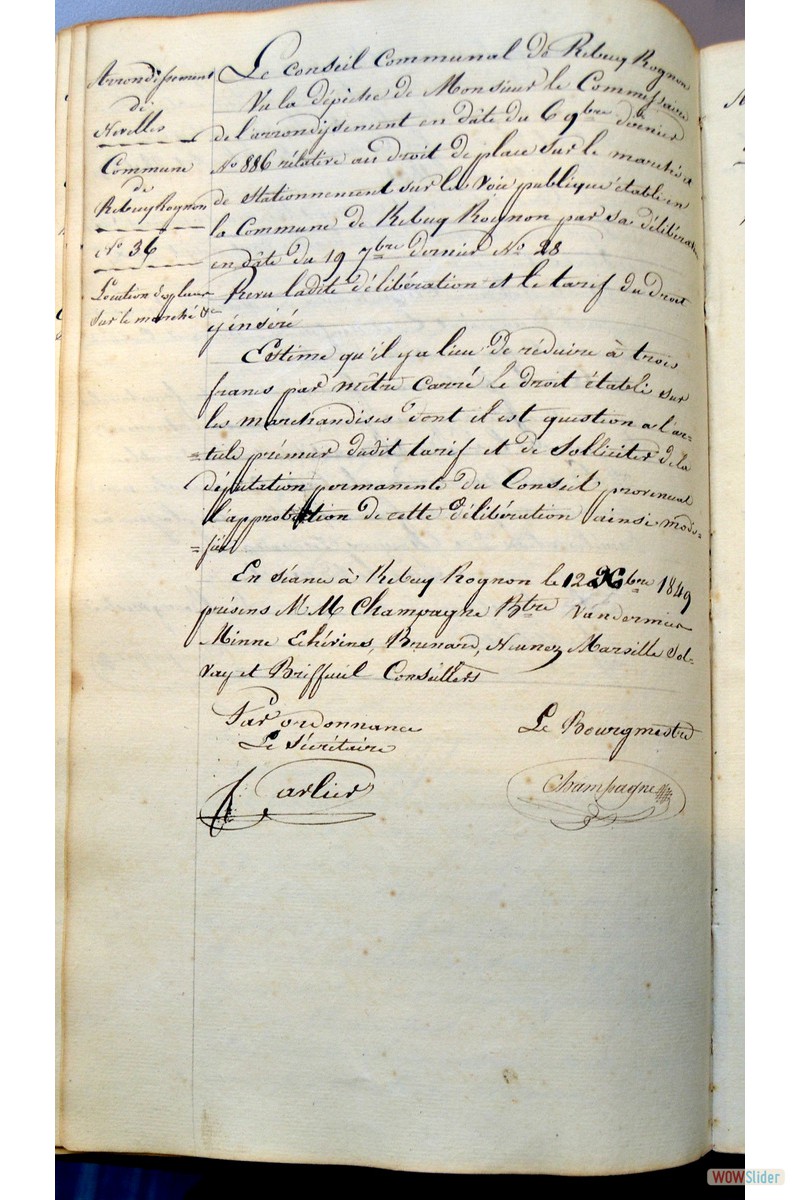 Arrondissement
de
Nivelles
Commune
de
Rebecq Rognon
No 36
Location des places
sur le marché &a
Le Conseil Communal de Rebecq Rognon
Vu la dépêche de Monsieur le Commissaire
de l'arrondissement en dâte du 6 9bre dernier
No 886 rélative au droit de place sur le marché &
de Stationnement sur la voie publique établi en
la Commune de Rebecq Rognon par sa délibération
en dâte du 19 7bre dernier No 28
Revu ladite délibération et le tarif du droit
y inséré
Estime qu'il y a lieu de réduire à trois
francs par mêtre carré le droit établi sur
les marchandises dont il est question a l'ar-
=ticle prémier dudit tarif et de Solliciter de la
députation permanente du Conseil provincial
l'approbation de cette délibération ainsi modi=
=fiée
En Séance à Rebecq Rognon le 12 Xbre 1849
présens MM Champagne Btre Vandermies
Minne Echévins, Brenard, Neunez Marsille Sol-
vay et Briffeuil Conseillers
Par ordonnance
Le Sécrétaire
Carlier
Le Bourgmestre
Champagne
WOWSlider